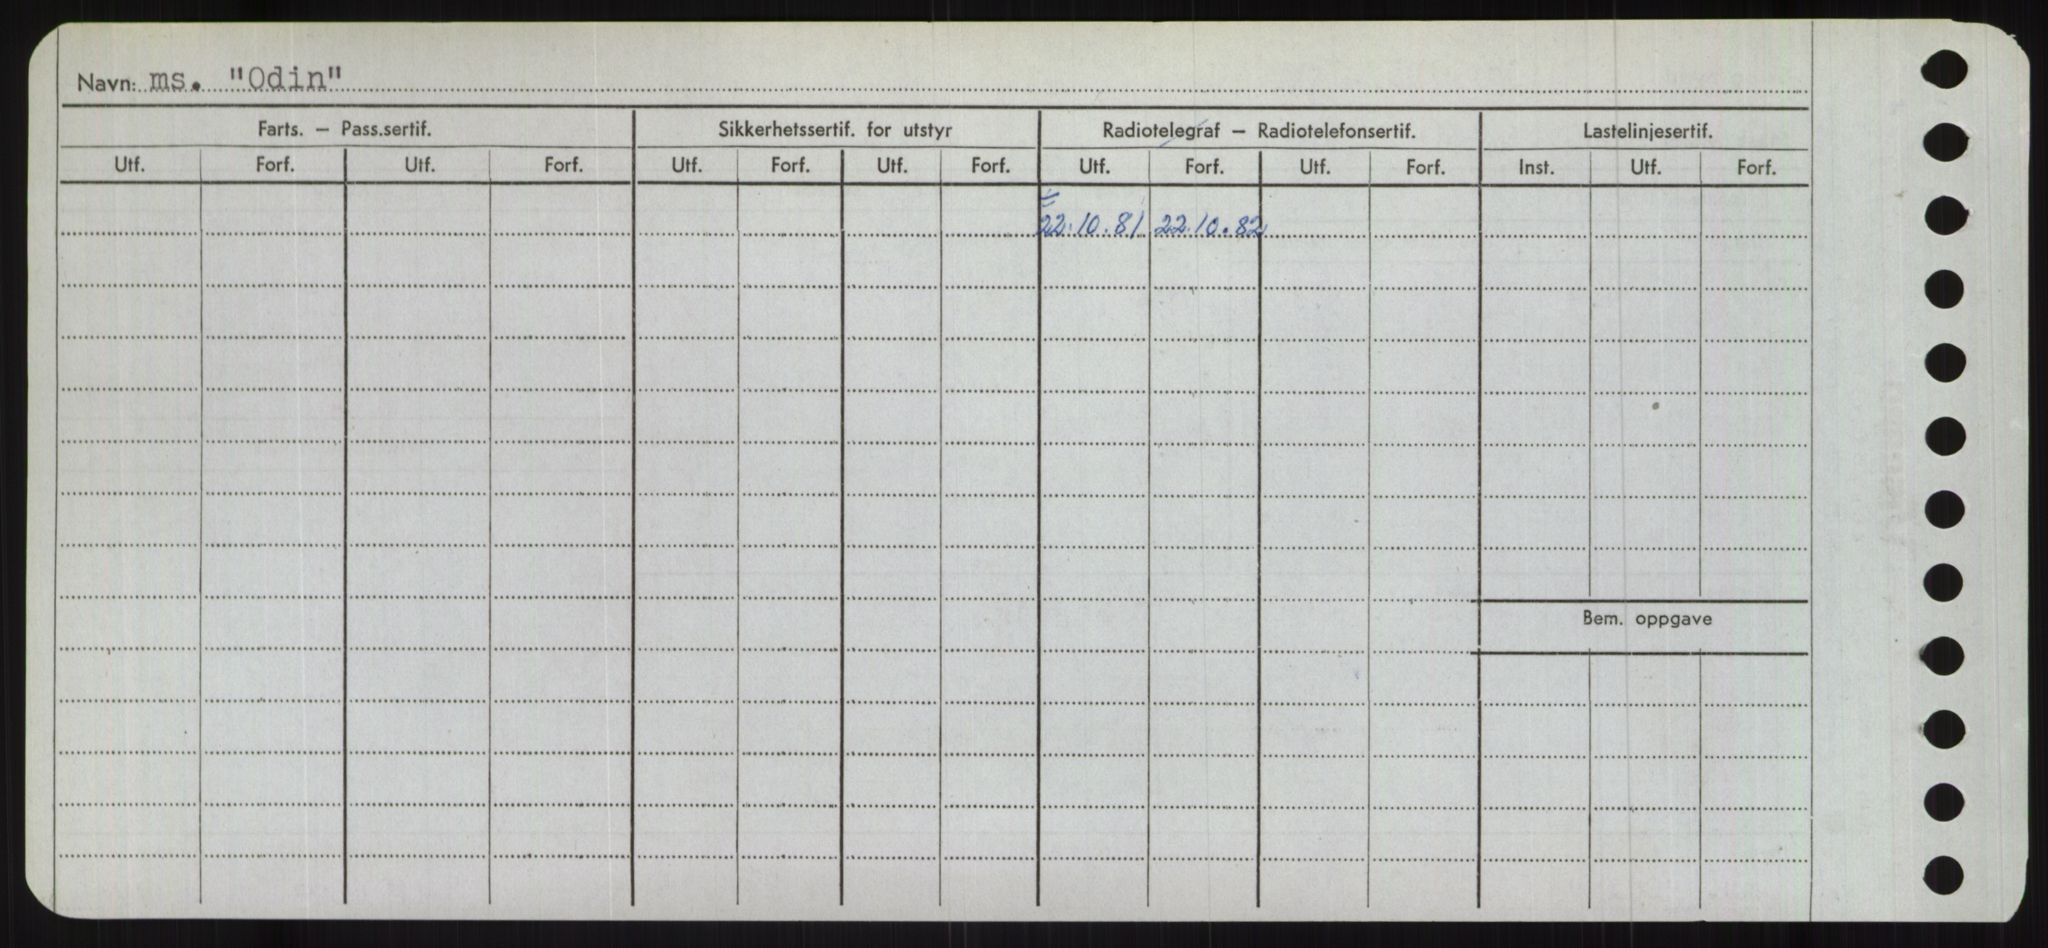 Navn: ms. "Odin"
Farts. – Pass.sertif. Sikkerhetssertif. for utstyr Radiotelegraf – Radiotelefonsertif. Lastelinjesertif.
Utf. Forf. Utf. Forf. Utf. Forf. Utf. Forf. Utf. Forf. Utf. Forf. Inst. Utf. Forf.
22.10.81 22.10.82
Bem. oppgave